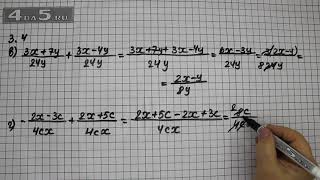 4DA5.RU
3.4
в) (3x+7y)/24y + (3x-4y)/24y = (3x+7y+3x-4y)/24y = (6x-3y)/24y = 3(2x-y)/8 24y =
= (2x-y)/8y
г) -(2x-3c)/4cx + (2x+5c)/4cx = (2x+5c-2x+3c)/4cx = 2 8c/4c